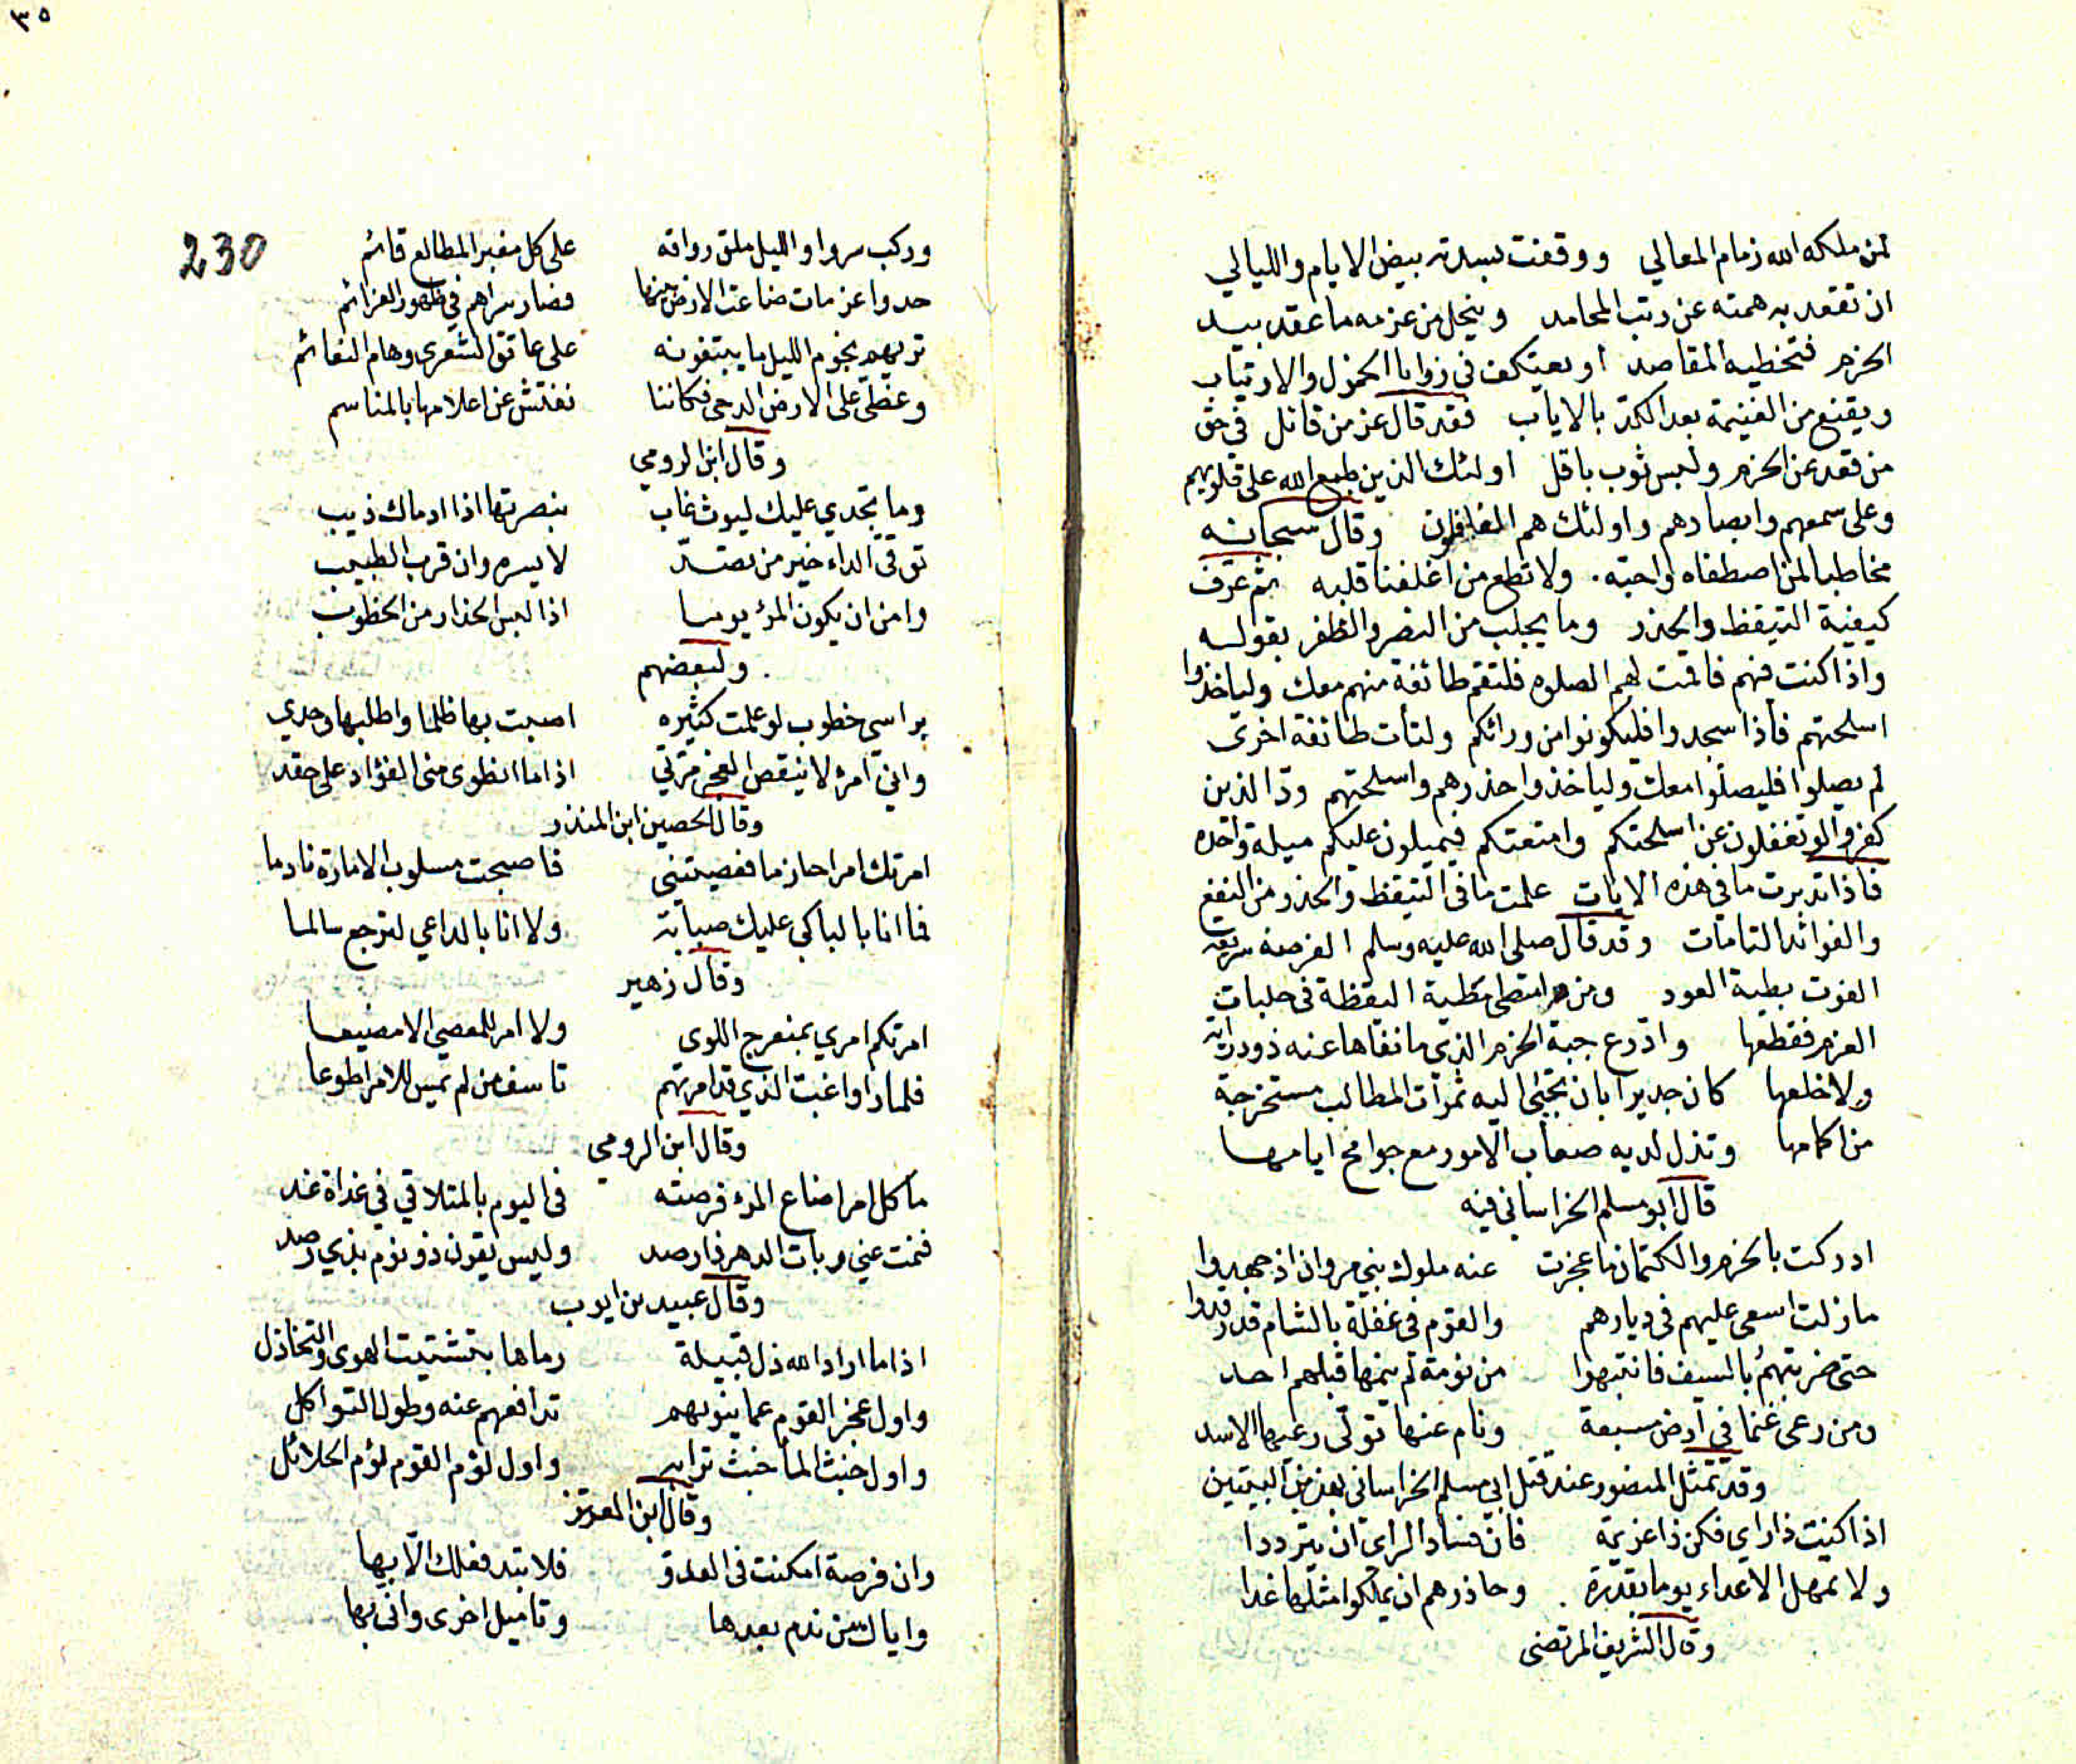 لمن ملكه الله زمام المعالي ووقفت بسدته بيض الايام والليالي
ان تقعد به همته عن رتب المحامد وينحل من عزمه ما عقد بيد
الحزم فتخطيه المقاصد او يعتكف في زوايا الخمول والارتياب
ويقنع من الغنيمة بعد الكد بالاياب فقد قال عز من قائل في حق
من قعد عن الحزم ولبس ثوب باقل اولئك الذين طبع الله على قلوبهم
وعلى سمعهم وابصارهم واولئك هم الغافلون وقال سبحانه
مخاطبا لمن اصطفاه واحبه ولا تطع من اغفلنا قلبه ثم عرف
كيفية التيقظ والحذر وما يجلب من النصر والظفر بقوله
واذا كنت فيهم فاقمت لهم الصلوه فلتقم طائفة منهم معك ولياخذوا
اسلحتهم فاذا سجدوا فليكونوا من ورائكم ولتأت طائفة اخرى
لم يصلوا فليصلوا معك ولياخذوا حذرهم واسلحتهم ودّ الذين
كفروا لو تغفلون عن اسلحتكم وامتعتكم فيميلون عليكم ميلة واحده
فاذا تدبرت ما في هذه الايات علمت ما في التيقظ والحذر من النفع
والفوائد التامات وقد قال صلى الله عليه وسلم الفرصة سريعة
الفوت بطية العود ومن امتطى مطية اليقظة في حلبات
العزم فقطعها وادّرع جبة الحزم الذي ما نفاها عنه ذو دراية
ولا خلعها كان جديرا بان تجبى اليه ثمرات المطالب مستخرجة
من اكمامها وتذل لديه صعاب الامور مع جوامح ايامها
قال ابو مسلم الخراساني فيه
ادركت بالحزم والكتمان ما عجزت عنه ملوك بني مروان اذ جهدوا
ما زلت اسعى عليهم في ديارهم والقوم في غفلة بالشام قد رقدوا
حتى ضربتهم بالسيف فانتبهوا من نومة لم ينمها قبلهم احد
ومن رعى غنما في ارض مسبعة ونام عنها تولى رعيها الاسد
وقد تمثل المنصور عند قتل ابي مسلم الخراساني بهذين البيتين
اذا كنت ذا راي فكن ذا عزيمة فان فساد الراى ان يترددا
ولا تمهل الاعداء يوما بقدرة وحاذرهم ان يملكوا مثلها غدا
وقال الشريف المرتضى
٣٥
230
وركب سروا والليل ملق رواقه على كل مغبر المطالع قائم
حدوا عزمات ضاعت الارض بينها فصار سراهم في ظهور العزائم
تريهم نجوم الليل ما يبتغونه على عاتق الشعرى وهام النعائم
وغطى على الارض الدجى فكاننا نفتش عن اعلامها بالمناسم
وقال ابن الرومي
وما تجدي عليك ليوث غاب بنصرتها اذا ادماك ذيب
توقى الداء خير من تصد لايسره وان قرب الطبيب
وامن ان يكون المرء يوما اذا لبس الحذار من الخطوب
ولبعضهم
براسي خطوب لو علمت كثيره اصبت بها ظلما واطلبها وحدي
واني امرء لا ينقص العجز مرتي اذا ما انطوى مني الفؤاد على حقد
وقال الحصين ابن المنذر
امرتك امرا حازما فعصيتني فاصبحت مسلوب الامارة نادما
فما انا بالباكي عليك صبابة ولا انا بالداعي لترجع سالما
وقال زهير
امرتكم امري بمنعرج اللوى ولا امر للمعصي الا مضيعا
فلما راوا غب الذي قد امرتهم تاسف من لم يمس للامر اطوعا
وقال ابن الرومي
ما كل امر اضاع المرء فرصته في اليوم بالمتلاقي في غداة غد
فنمت عني وبات الدهر فارصد وليس يقون ذو نوم بذي رصد
وقال عبيد بن ايوب
اذا ما اراد الله ذل قبيلة رماها بتشتيت الهوى والتخاذل
واول عجز القوم عما ينوبهم تدافعهم عنه وطول التواكل
واول خبث الماء خبث ترابه واول لؤم القوم لؤم الحلائل
وقال ابن المعتز
وان فرصة امكنت في العدو فلا تبد فعلك الّا بها
واياك من ندم بعدها وتاميل اخرى وانى بها